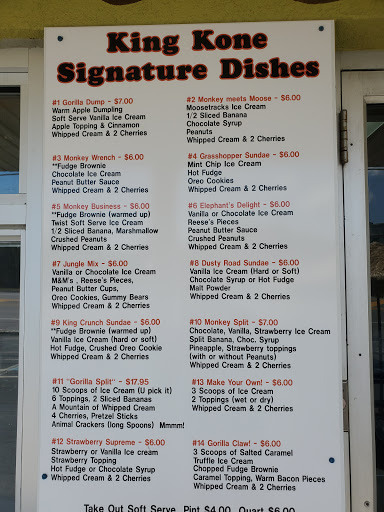 King Kone
Signature Dishes
#1 Gorilla Dump - $7.00
Warm Apple Dumpling
Soft Serve Vanilla Ice Cream
Apple Topping & Cinnamon
Whipped Cream & 2 Cherries
#2 Monkey meets Moose - $6.00
Moosetracks Ice Cream
1/2 Sliced Banana
Chocolate Syrup
Peanuts
Whipped Cream & 2 Cherries
#3 Monkey Wrench - $6.00
**Fudge Brownie
Chocolate Ice Cream
Peanut Butter Sauce
Whipped Cream & 2 Cherries
#4 Grasshopper Sundae - $6.00
Mint Chip Ice Cream
Hot Fudge
Oreo Cookies
Whipped Cream & 2 Cherries
#5 Monkey Business - $6.00
**Fudge Brownie (warmed up)
Twist Soft Serve Ice Cream
1/2 Sliced Banana, Marshmallow
Crushed Peanuts
Whipped Cream & 2 Cherries
#6 Elephant's Delight - $6.00
Vanilla or Chocolate Ice Cream
Reese's Pieces
Peanut Butter Sauce
Crushed Peanuts
Whipped Cream & 2 Cherries
#7 Jungle Mix - $6.00
Vanilla or Chocolate Ice Cream
M&M's , Reese's Pieces,
Peanut Butter Cups,
Oreo Cookies, Gummy Bears
Whipped Cream & 2 Cherries
#8 Dusty Road Sundae - $6.00
Vanilla Ice Cream (Hard or Soft)
Chocolate Syrup or Hot Fudge
Malt Powder
Whipped Cream & 2 Cherries
#9 King Crunch Sundae - $6.00
**Fudge Brownie (warmed up)
Vanilla Ice Cream (hard or soft)
Hot Fudge, Crushed Oreo Cookie
Whipped Cream & 2 Cherries
#10 Monkey Split - $7.00
Chocolate, Vanilla, Strawberry Ice Cream
Split Banana, Choc. Syrup
Pineapple, Strawberry toppings
(with or without Peanuts)
Whipped Cream & 2 Cherries
#11 "Gorilla Split" - $17.95
10 Scoops of Ice Cream (U pick it)
6 Toppings, 2 Sliced Bananas
A Mountain of Whipped Cream
4 Cherries, Pretzel Sticks
Animal Crackers (long Spoons) Mmmm!
#13 Make Your Own! - $6.00
3 Scoops of Ice Cream
2 Toppings (wet or dry)
Whipped Cream & 2 Cherries
#12 Strawberry Supreme - $6.00
Strawberry or Vanilla Ice cream
Strawberry Topping
Hot Fudge or Chocolate Syrup
Whipped Cream & 2 Cherries
#14 Gorilla Claw! - $6.00
3 Scoops of Salted Caramel
Truffle Ice Cream
Chopped Fudge Brownie
Caramel Topping, Warm Bacon Pieces
Whipped Cream & 2 Cherries
Take Out Soft Serve Pint $4.00 Quart $6.00